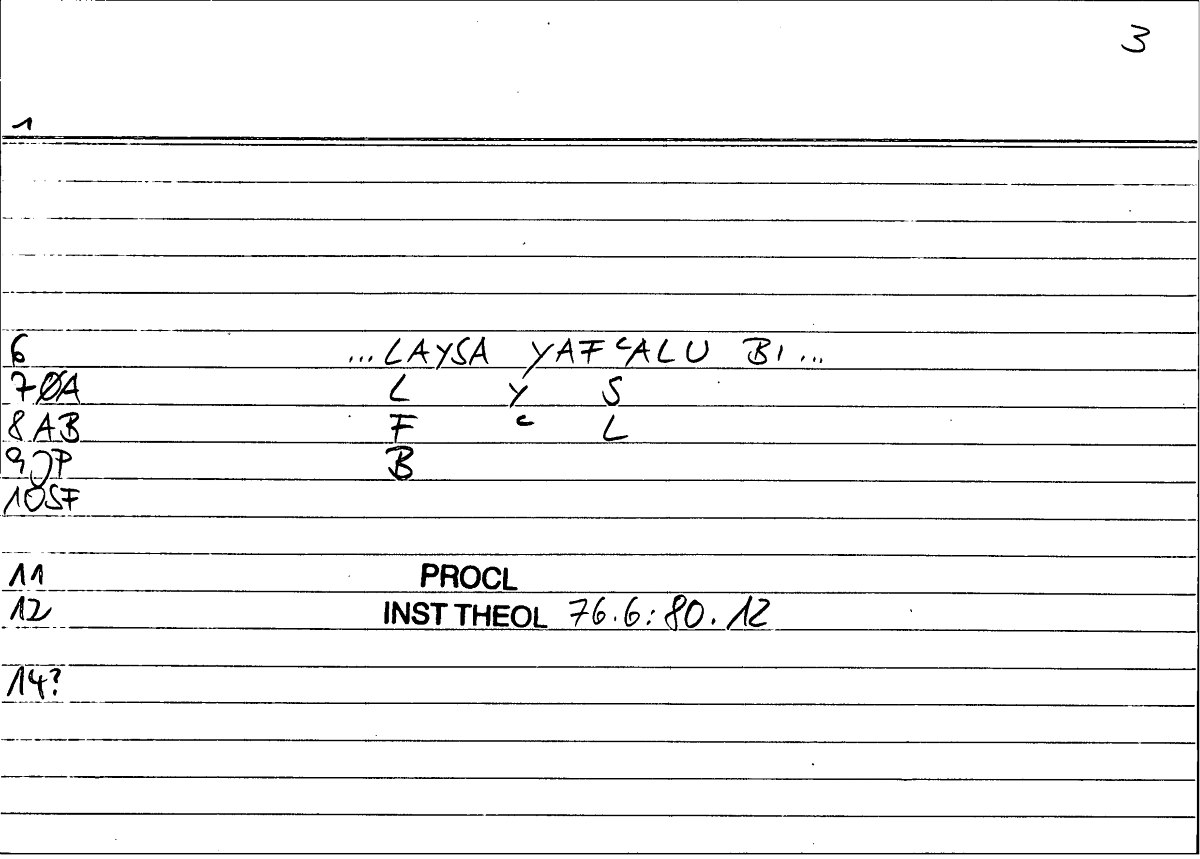 3
1
6 ...LAYSA YAFʿALU BI...
7ØA L Y S
8AB F ʿ L
9JP B
10SF
11 PROCL
12 INST THEOL 76.6:80.12
14?